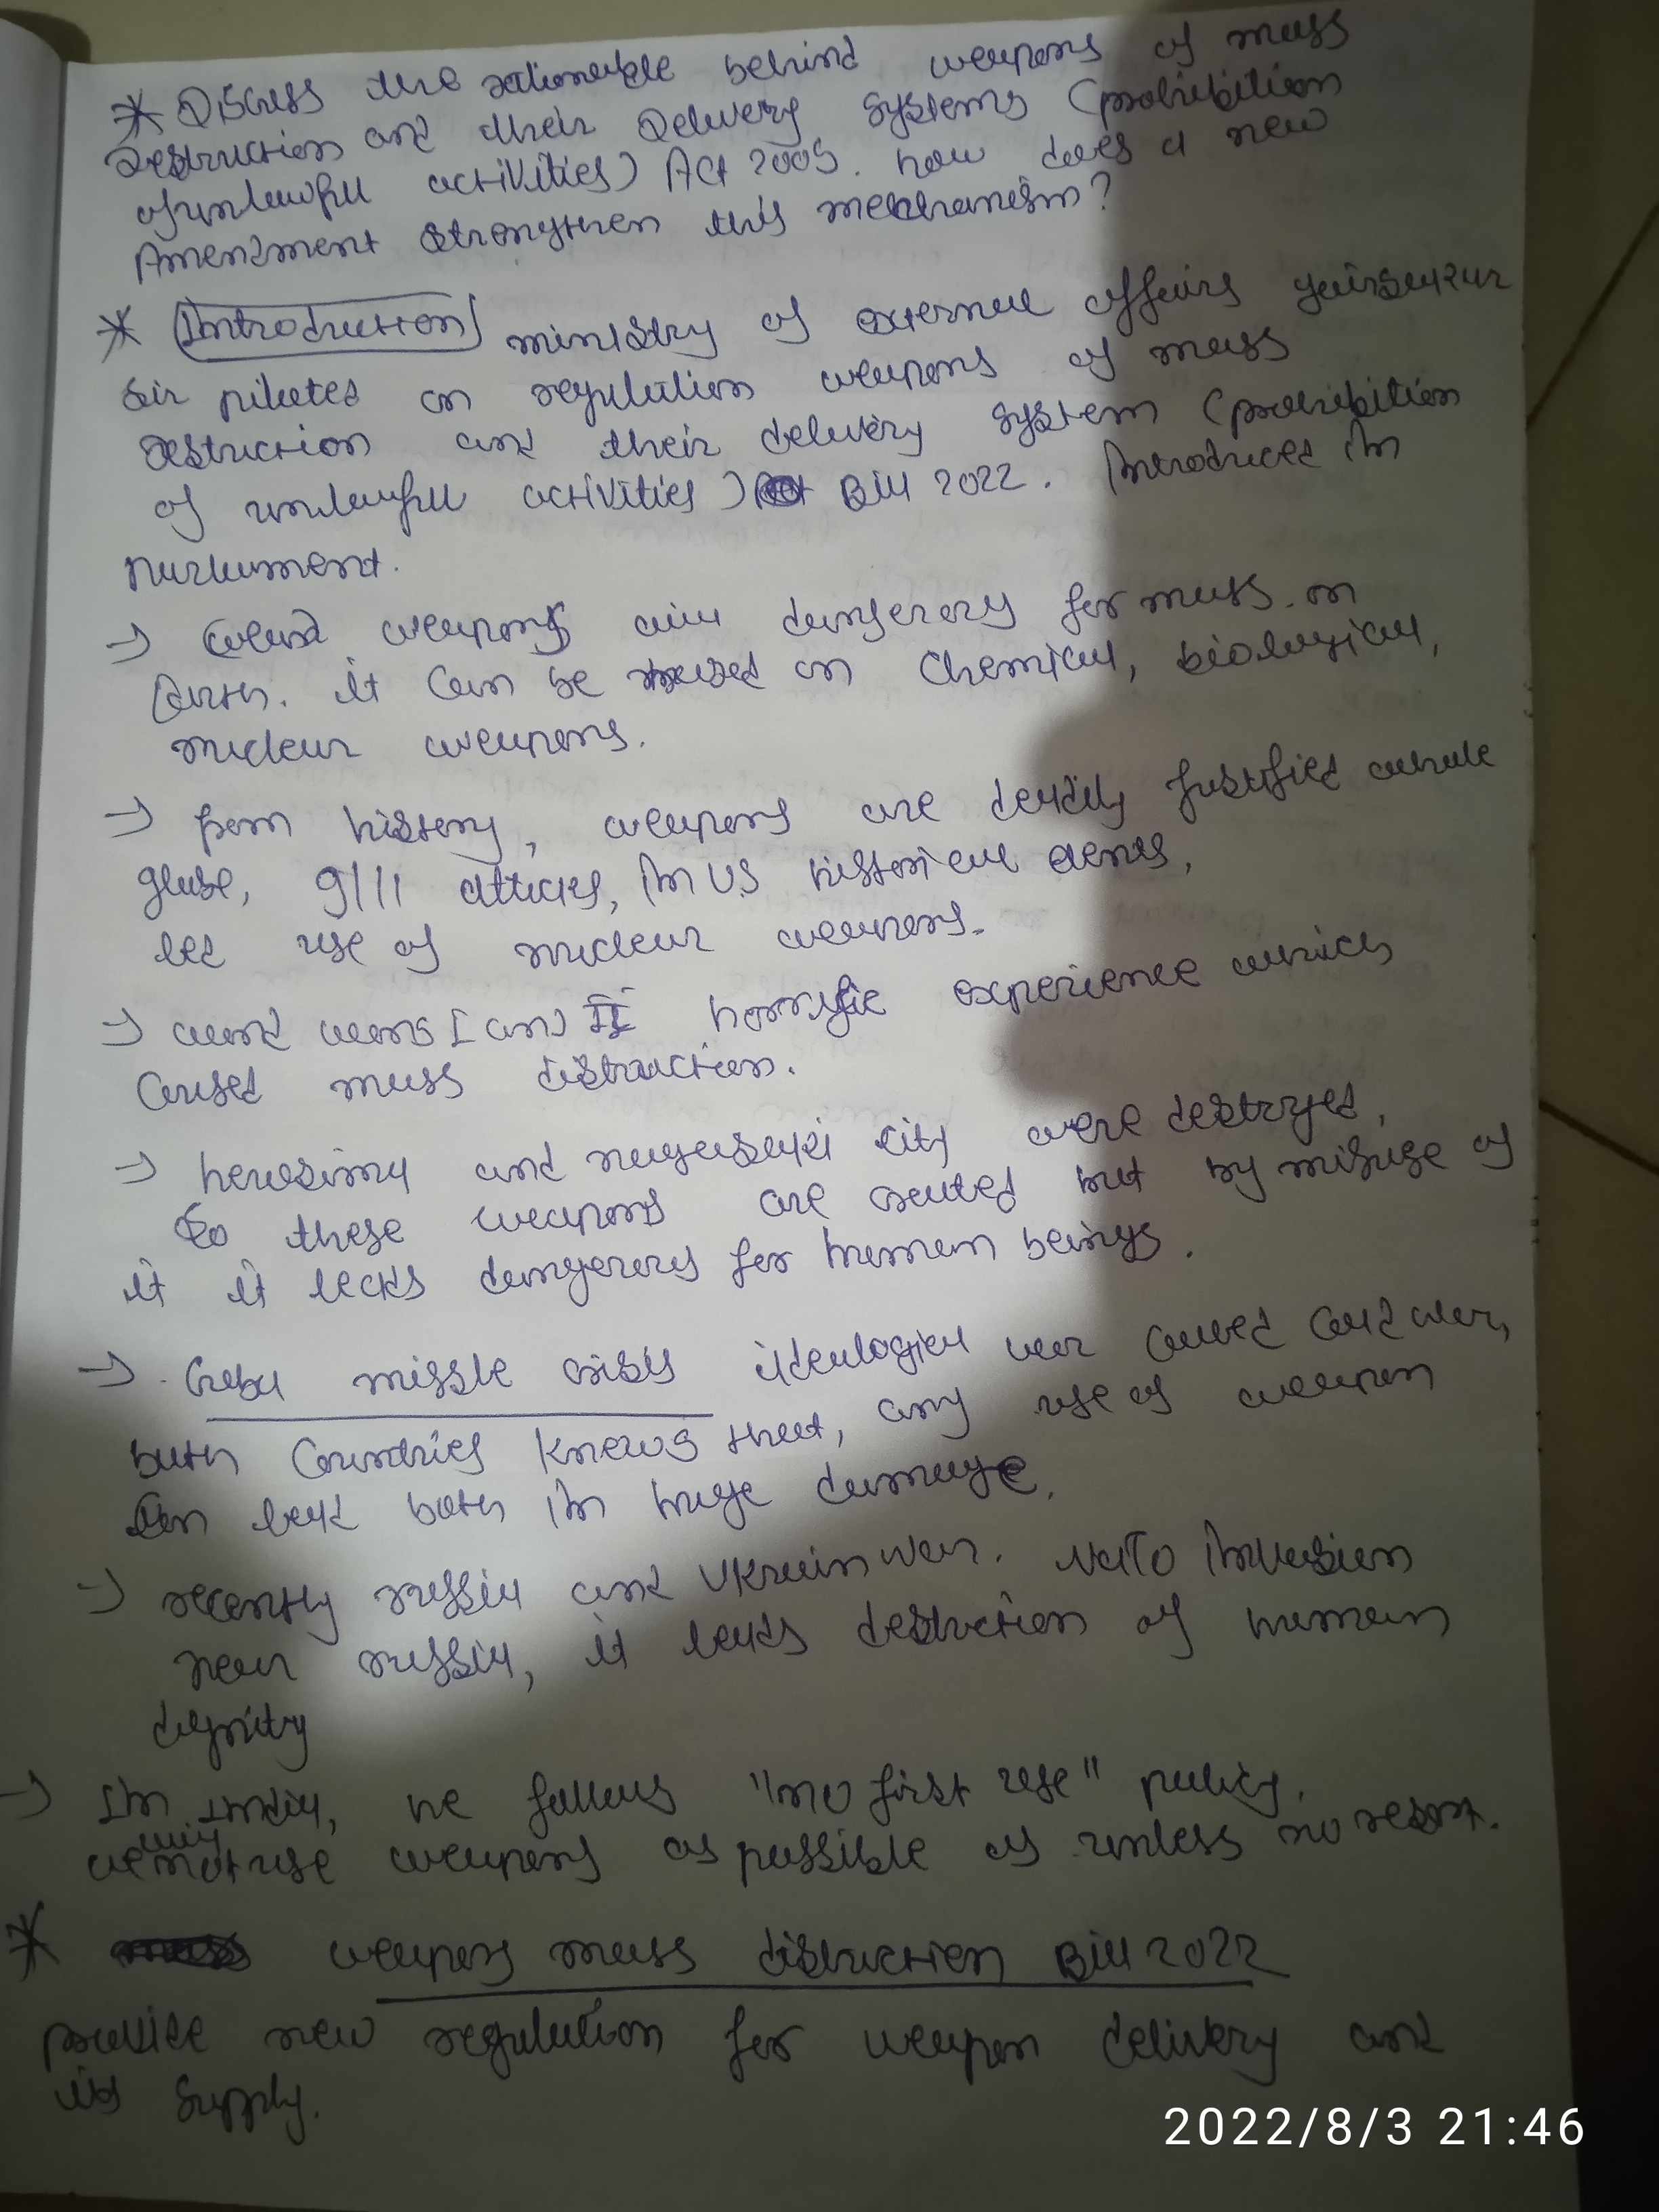 * Discuss the rationable behind weapons of mass
destruction and their Delivery systems (prohibition
of unlawfull activities) Act 2005. how does a new
Amendment strengthen this mechanism?
* Introduction ministry of external affairs
sir piloted on regulation weapons of mass
destruction and their delivery system (prohibition
of unlawfull activities) Bill 2022. Introduced in
Parliament.
→ weapons dangerors for mass on
Earth. it can be used on Chemical, biological,
nuclear weapons.
→ from history, weapons are deadly justified whole
globe, 9/11 attacks, in US historical events,
led use of nuclear weapons.
→ world wars I and II horrific experience which
caused mass distruction.
→ herosima and nagasaki city were destroyed,
so these weapons are created but by misuse of
it it leads dangerors for human beings.
→ Cuba missle crisis ideological war caused cold war,
both Countries knews that, any use of weapon
can lead both in huge damage.
→ recently russia and Ukrain war. NATO invasion
near russia, it leads destruction of human
dignity
→ In India, we follows "no first use" policy.
we will not use weapons as possible as unless no resort.
* weapons mass distruction Bill 2022
provide new regulation for weapon delivery and
its supply.
2022/8/3 21:46